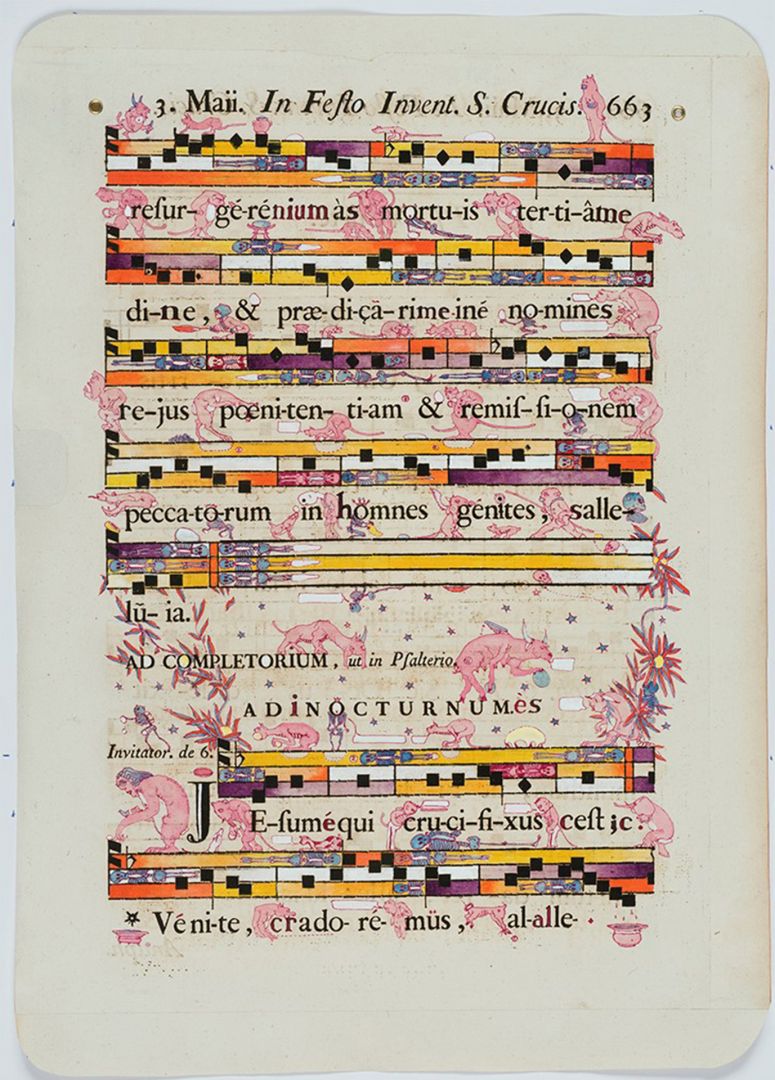 3. Maii. In Festo Invent. S. Crucis. 663
resur- gé-rénium às mortu-is ter-ti-âme
di-ne, & præ-di-çã-rime iné no-mines
re-jus pœni-ten- ti-am & remis-si-o-nem
pecca-to-rum in homnes génites, salle-
lũ- ia.
AD COMPLETORIUM, ut in Psalterio.
AD iNOCTURNUM.ès
Invitator. de 6.
JE-sumé qui cru-ci-fi-xus cest ;c.
* Vé ni-te, crado- ré- müs, al-alle-